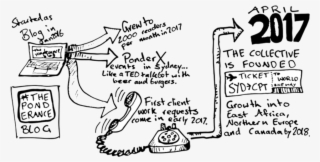 Started as
Blog in
Grew to
2000 readers
per month in 2017
PonderX
events in Sydney...
Like a TED talk but with
beer and burgers.
#THE
POND
ERANCE
BLOG
First client
work requests
come in early 2017.
APRIL
2017
THE COLLECTIVE
IS FOUNDED
TICKET
SYD→CPT
TO
WORLD
Growth into
East Africa,
Northern Europe
and Canada by 2018.